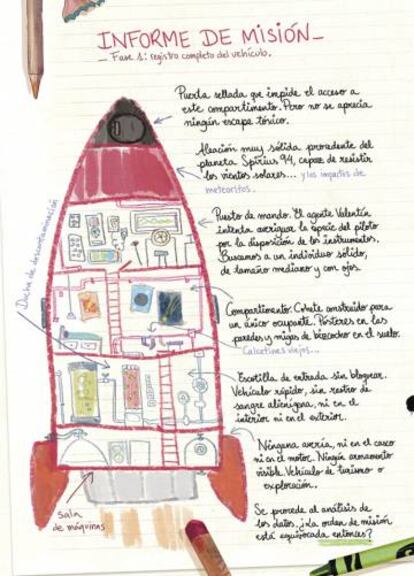 INFORME DE MISIÓN_
_ Fase 1: registro completo del vehículo.
Puerta sellada que impide el acceso a
este compartimento. Pero no se aprecia
ningún escape tóxico.
Aleación muy sólida procedente del
planeta Spirius 94, capaz de resistir
los vientos solares... y los impactos de
meteoritos...
Puesto de mando. El agente Valentín
intenta averiguar la especie del piloto
por la disposición de los instrumentos.
Buscamos a un individuo sólido,
de tamaño mediano y con ojos.
Ducha de descontaminación
Compartimento. Cohete construido para
un único ocupante. Pósteres en las
paredes y migas de bizcocho en el suelo.
Calcetines viejos...
Escotilla de entrada sin bloquear.
Vehículo rápido, sin rastro de
sangre alienígena, ni en el
interior ni en el exterior.
Ninguna avería, ni en el casco
ni en el motor. Ningún armamento
visible. Vehículo de turismo o
exploración.
Sala
de máquinas
Se procede al análisis de
los datos. ¿La orden de misión
está equivocada entonces?